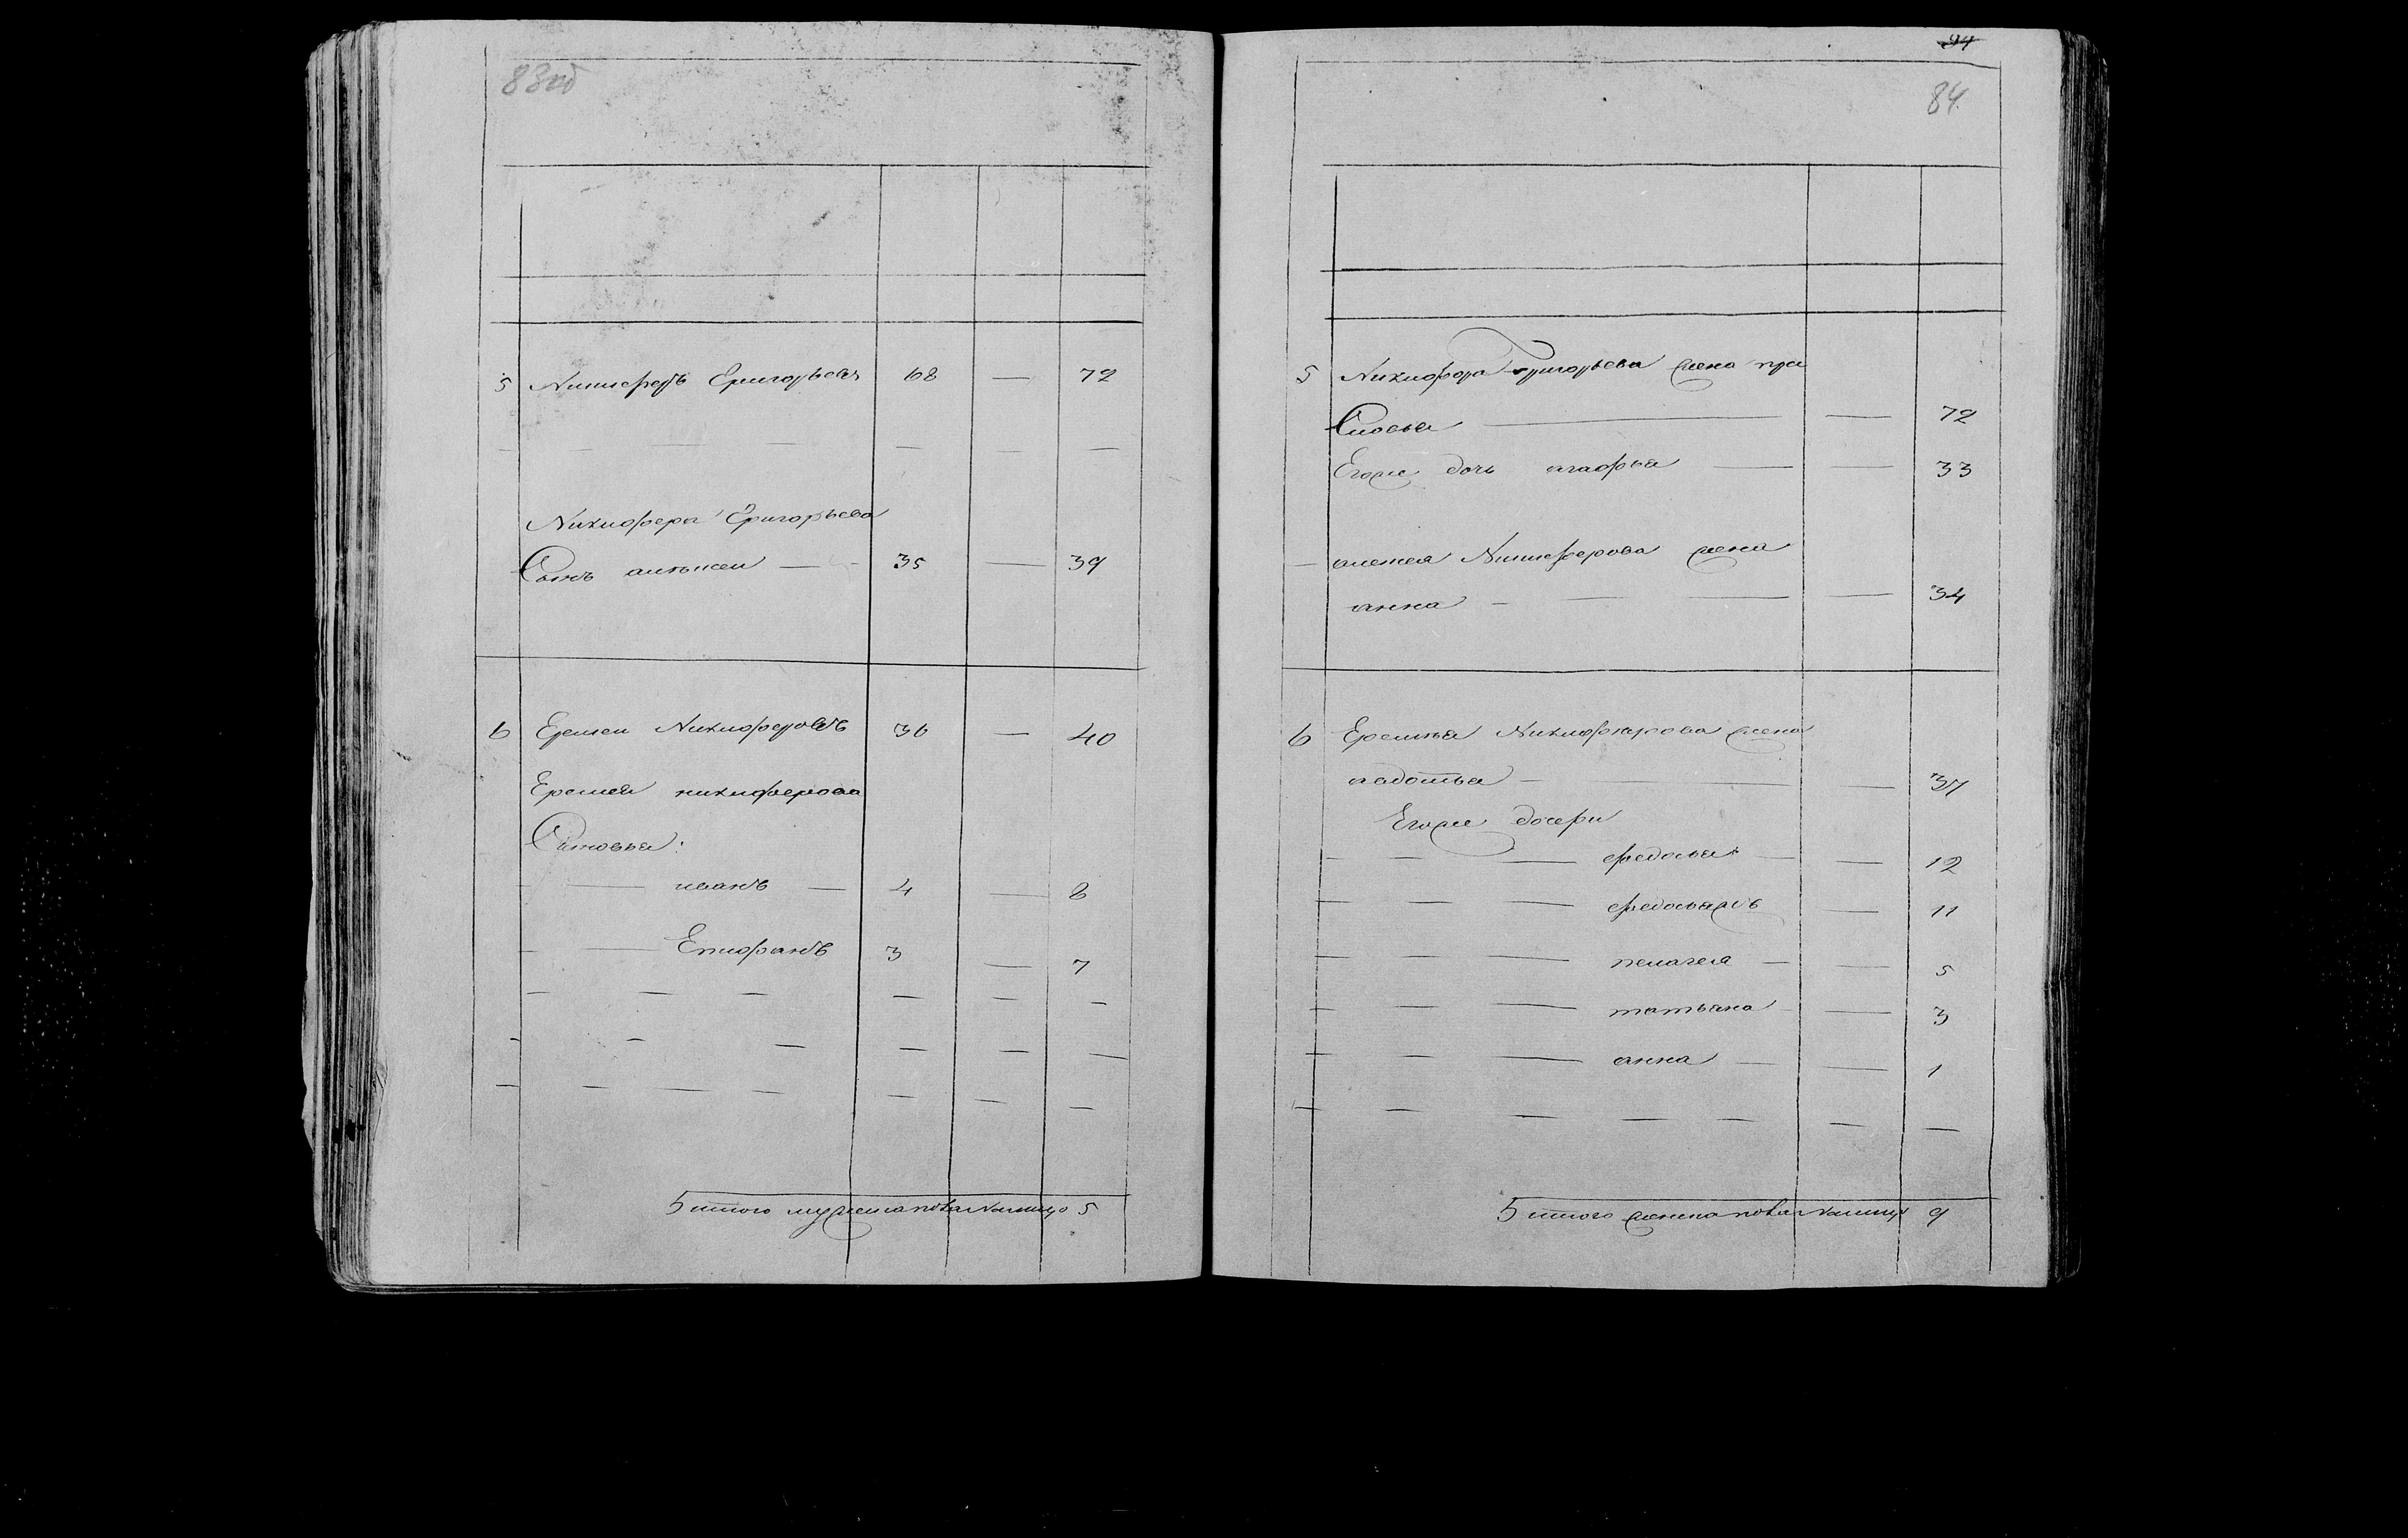 83об
5 Никифоръ Григорьевъ 68 — 72
Никифора Григорьева
Сынъ алексеи — 35 — 39
6 Еремеи Никифоровъ 36 — 40
Еремея никифорова
Сыновья:
— иванъ — 4 — 8
— Епифанъ 3 — 7
Итого мужеска пола на лицо 5
94
84
5 Никифора Григорьева жена
— — 72
Егоже дочь агафья — — 33
алексея Никифорова жена
анна — — — — 34
6 Еремея Никифорова жена
авдотья — — — 37
Егоже дочери
— — — федосья — — 12
— — — федосьяжъ — 11
— — — пелагея — — 5
— — — татьяна — — 3
— — — анна — — 1
Итого женска пола на лицо 9